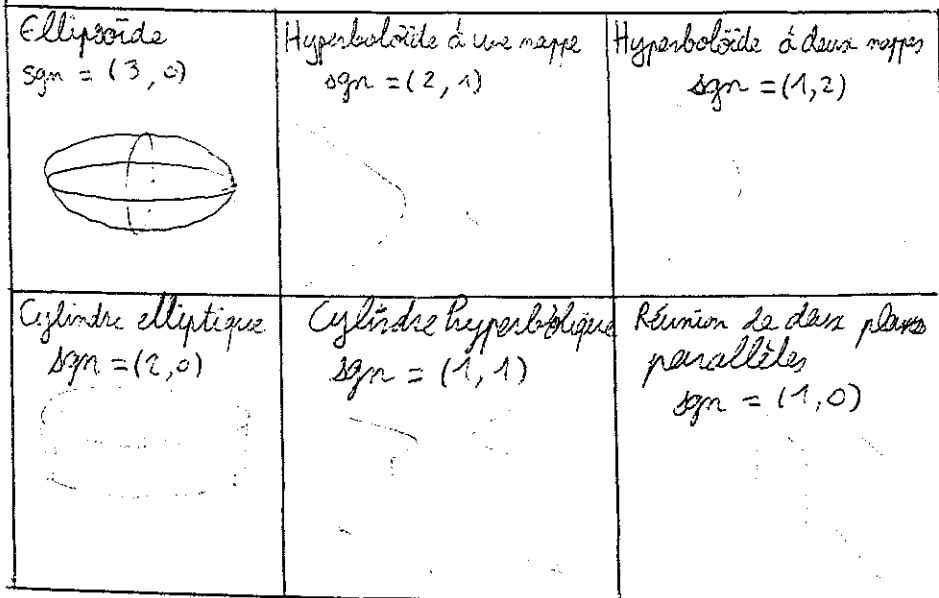 Ellipsoïde
sgn = (3, 0)
Hyperboloïde à une nappe
sgn = (2, 1)
Hyperboloïde à deux nappes
sgn = (1, 2)
Cylindre elliptique
sgn = (2, 0)
Cylindre hyperbolique
sgn = (1, 1)
Réunion de deux plans
parallèles
sgn = (1, 0)